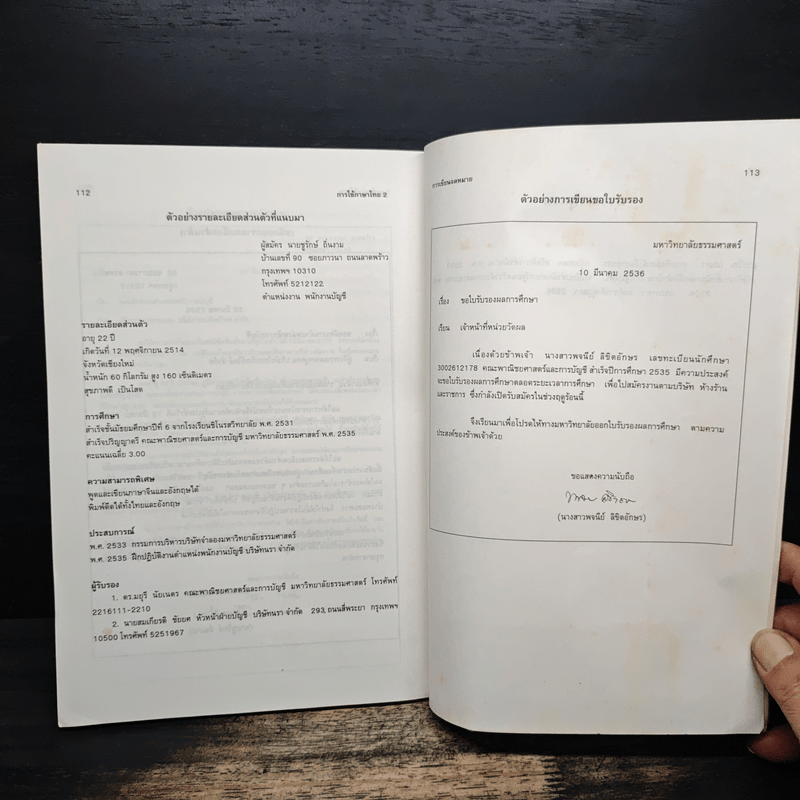 112
การใช้ภาษาไทย 2
ตัวอย่างรายละเอียดส่วนตัวที่แนบมา
ผู้สมัคร นายชูรักษ์ ถิ่นงาม
บ้านเลขที่ 90 ซอยภาวนา ถนนลาดพร้าว
กรุงเทพฯ 10310
โทรศัพท์ 5212122
ตำแหน่งงาน พนักงานบัญชี
รายละเอียดส่วนตัว
อายุ 22 ปี
เกิดวันที่ 12 พฤศจิกายน 2514
จังหวัดเชียงใหม่
น้ำหนัก 60 กิโลกรัม สูง 160 เซนติเมตร
สุขภาพดี เป็นโสด
การศึกษา
สำเร็จชั้นมัธยมศึกษาปีที่ 6 จากโรงเรียนชิโนรสวิทยาลัย พ.ศ. 2531
สำเร็จปริญญาตรี คณะพาณิชยศาสตร์และการบัญชี มหาวิทยาลัยธรรมศาสตร์ พ.ศ. 2535
คะแนนเฉลี่ย 3.00
ความสามารถพิเศษ
พูดและเขียนภาษาจีนและอังกฤษได้
พิมพ์ดีดได้ทั้งไทยและอังกฤษ
ประสบการณ์
พ.ศ. 2533 กรรมการบริหารบริษัทจำลองมหาวิทยาลัยธรรมศาสตร์
พ.ศ. 2535 ฝึกปฏิบัติงานตำแหน่งพนักงานบัญชี บริษัทนรา จำกัด
ผู้รับรอง
1. ดร.มยุรี นัยเนตร คณะพาณิชยศาสตร์และการบัญชี มหาวิทยาลัยธรรมศาสตร์ โทรศัพท์
2216111-2210
2. นายสมเกียรติ ชัยยศ หัวหน้าฝ่ายบัญชี บริษัทนรา จำกัด 293 ถนนสี่พระยา กรุงเทพฯ
10500 โทรศัพท์ 5251967
การเขียนจดหมาย
113
ตัวอย่างการเขียนขอใบรับรอง
มหาวิทยาลัยธรรมศาสตร์
10 มีนาคม 2536
เรื่อง ขอใบรับรองผลการศึกษา
เรียน เจ้าหน้าที่หน่วยวัดผล
เนื่องด้วยข้าพเจ้า นางสาวพจนีย์ ลิขิตอักษร เลขทะเบียนนักศึกษา
3002612178 คณะพาณิชยศาสตร์และการบัญชี สำเร็จปีการศึกษา 2535 มีความประสงค์
จะขอใบรับรองผลการศึกษาตลอดระยะเวลาการศึกษา เพื่อไปสมัครงานตามบริษัท ห้างร้าน
และราชการ ซึ่งกำลังเปิดรับสมัครในช่วงฤดูร้อนนี้
จึงเรียนมาเพื่อโปรดให้ทางมหาวิทยาลัยออกใบรับรองผลการศึกษา ตามความ
ประสงค์ของข้าพเจ้าด้วย
ขอแสดงความนับถือ
(นางสาวพจนีย์ ลิขิตอักษร)